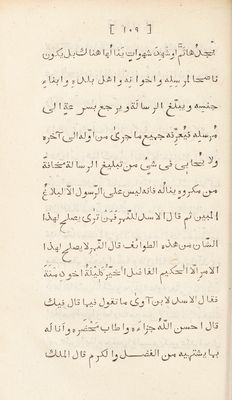 [ ١٠٩ ]
يجدها ثمّ او شهىَ شهوات ينالها هناك بل يكون
ناصحا لمرسله واخوانه واهل بلده وابناء
جنسه ويبلغ الرسالة ويرجع بسرعة الى
مُرسله فيُعرّفه جميع ما جرى من اوله الى آخره
ولا يُحابى فى شئ من تبليغ الرسالة مخافة
من مكروه يناله فانه ليس على الرسول الا البلاغ
المبين ثم قال الاسد للنمر فمن ترى يصلح لهذا
الشان من هذه الطوائف قال النمر لا يصلح لهذا
الامر الا الحكيم الفاضل الخيّر كليلة اخو دمنة
فقال الاسد لابن آوى ما تقول فيها قال فيك
قال احسن الله جزاءه واطاب محضره وانا له
بما يشتهيه من الفضل والكرم قال الملك